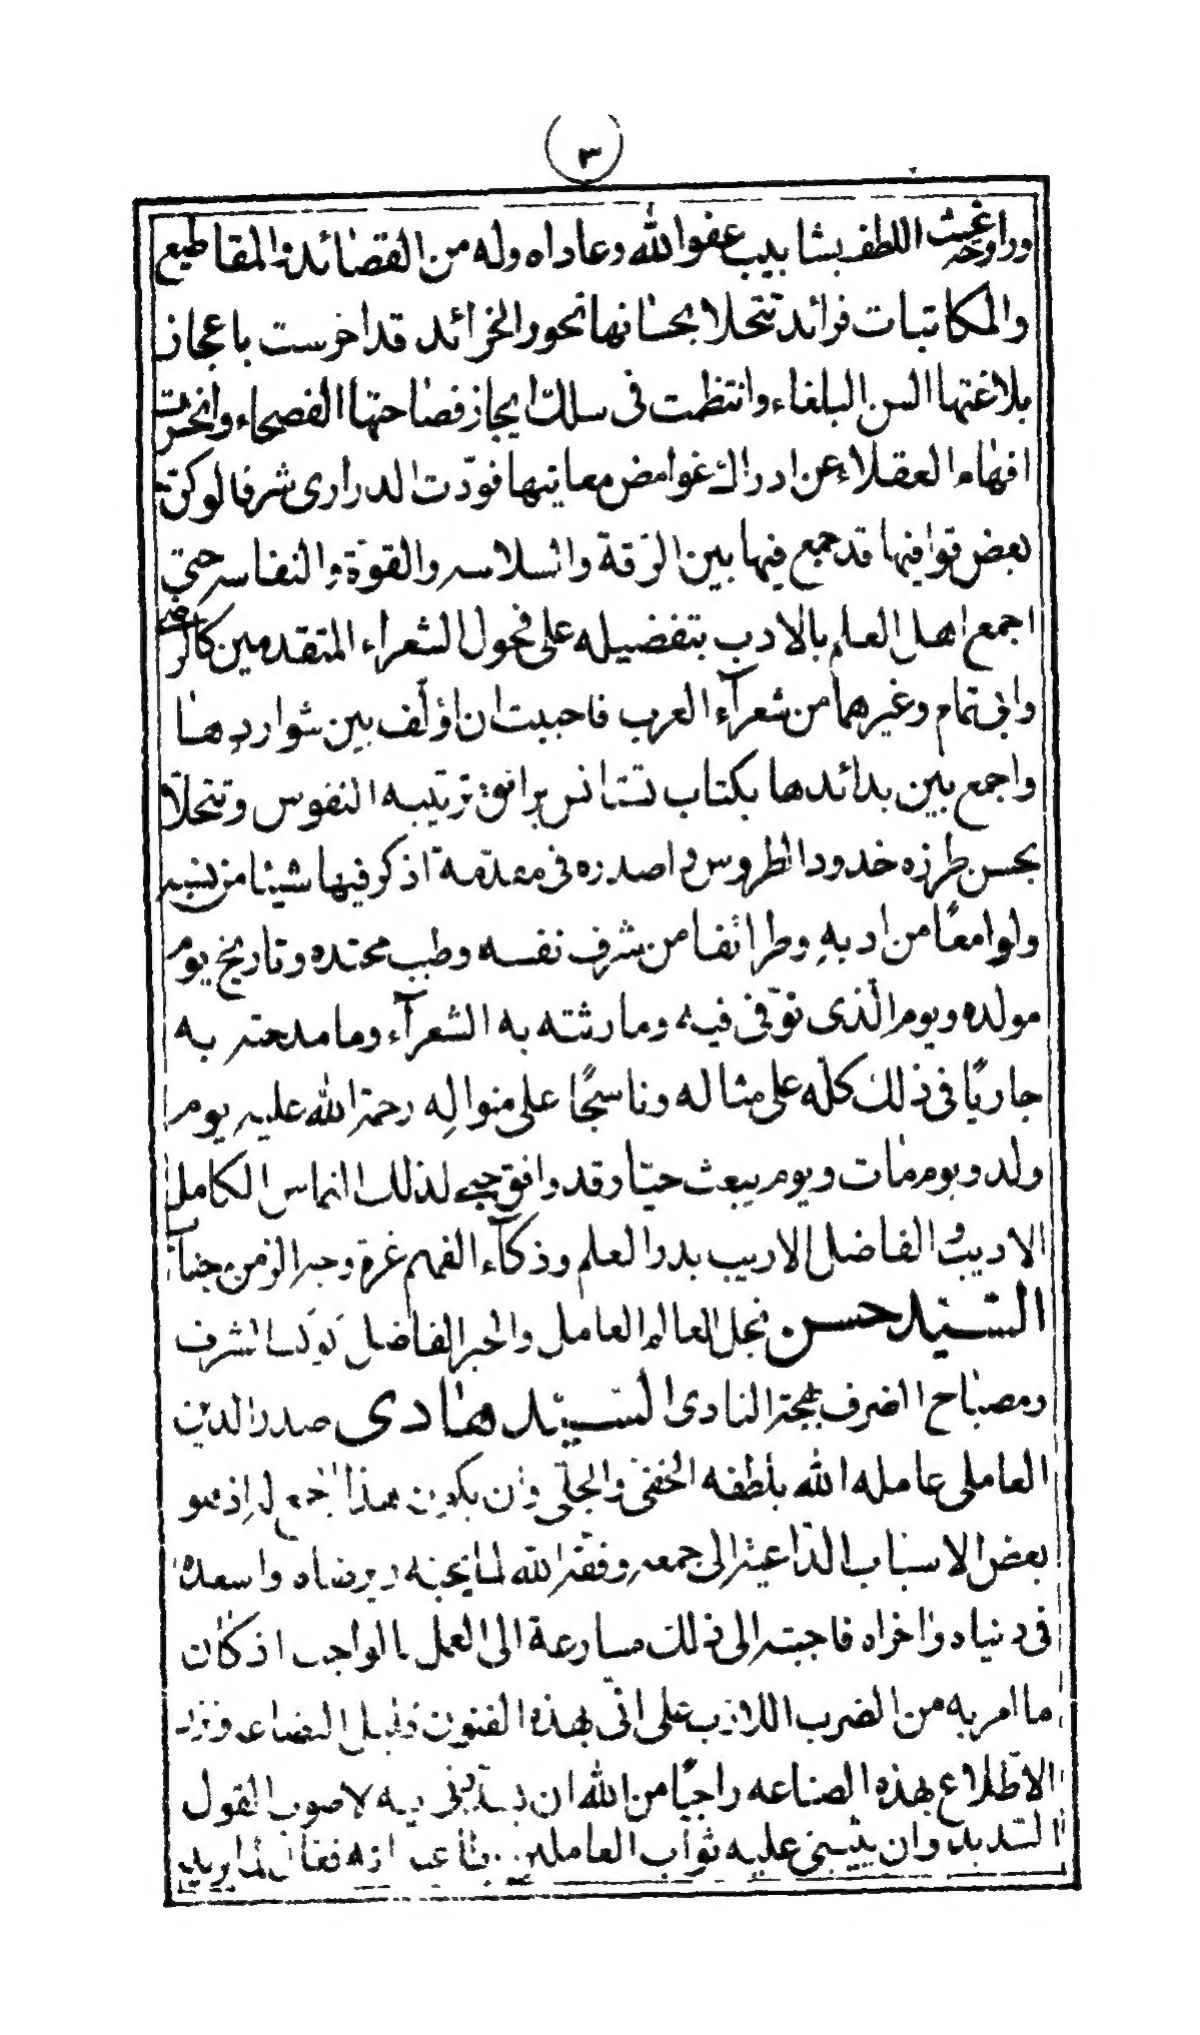 ٣
وراوحه غيث اللطف بشابيب عفو الله وغاداه وله من القصائد والمقاطيع
والمكاتبات فرائد تتحلا بحسانها نحور الخرائد قد اخرست باعجاز
بلاغتها السن البلغاء وانتظمت فى سلك ايجاز فصاحتها الفصحاء وانحرت
افهام العقلاء عن ادراك غوامض معانيها فودّت الدرارى شرفا لو كنّ
بعض قوافيها قد جمع فيها بين الرّقة والسلاسه والقوّة والنفاسه حتى
اجمع اهل العلم بالادب بتفضيله على فحول الشعراء المتقدمين كالرضى
وابى تمام وغيرهما من شعرآء العرب فاحببت ان اؤلّف بين شواردها
واجمع بين بدائدها بكتاب تستانس برائق ترتيبه النفوس وتتحلّا
بحسن طرزه خدود الطروس واصدره فى مقدّمة اذكر فيها شيئا من نسبه
ولوامعًا من ادبهِ وطرائفا من شرف نفسه وطيب محتده وتاريخ يوم
مولده ويوم الّذى توّفى فيه وما رثته به الشعرآء وما مدحته به
جاريًا فى ذلك كلّه على مثاله وناسجًا على منوالِه رحمة الله عليه يوم
ولد ويوم مات ويوم يبعث حيّا وقد وافق حبّى لذلك التماس الكامل
الاديب والفاضل الاريب بدر العلم وذكآء الفهم غرة وجه الزمن جناب
السّيد حسن نجل العالم العامل والحبر الفاضل كوكب الشرف
ومصباح الغرف بهجة النادى السيّد هادى صدر الدين
العاملى عامله الله بلطفه الخفىّ والجلّى وان يكون هذا الجمع له إذ هو
بعض الاسباب الدّاعية الى جمعه وفقه الله لما يحبه ويرضاه واسعده
فى دنياه واخراه فاجبته الى ذلك مسارعة الى العمل بالواجب اذ كان
ما امر به من الضرب اللازب على انّى بهذه الفنون قليل البضاعه ونزر
الاطّلاع بهذه الصناعه راجيًا من الله ان يسدّدنى فيه لاصوب القول
السّديد وان يثيبنى عليه ثواب العاملين انه فعال لما يريد